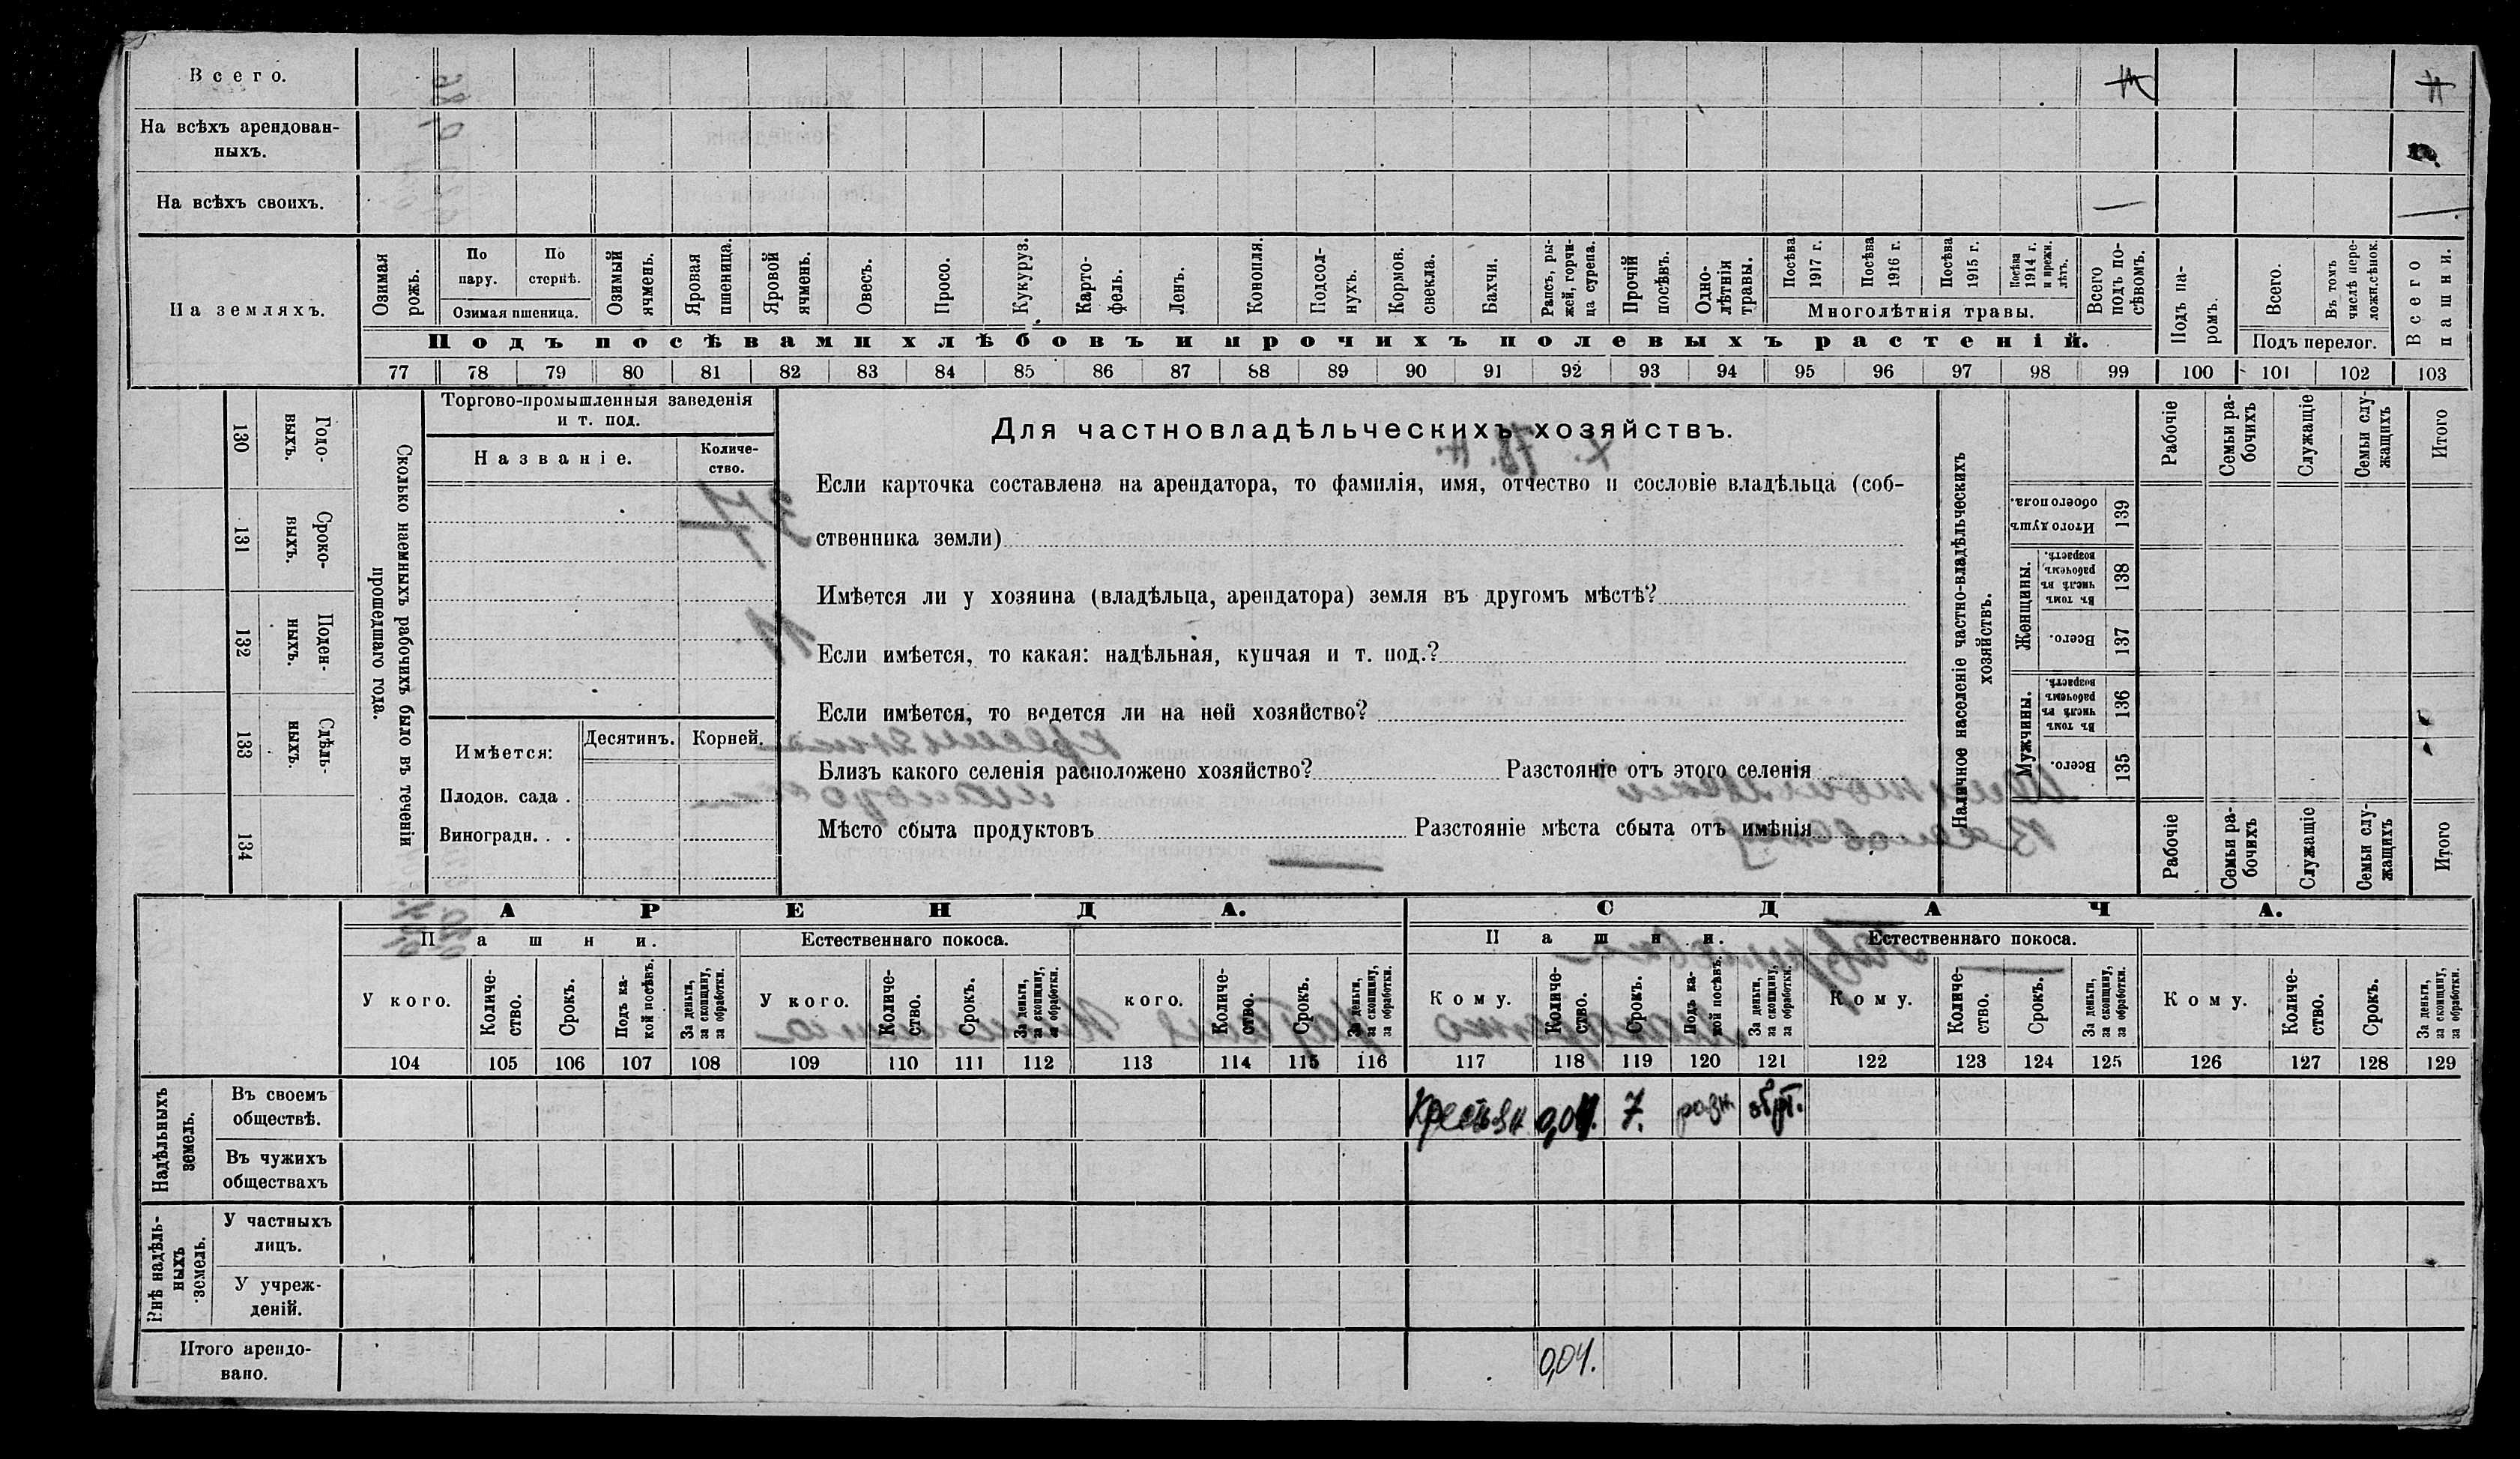 Всего.
На всѣхъ арендован-
ныхъ.
На всѣхъ своихъ.
На земляхъ.
Озимая рожь.
По пару.
По стернѣ.
Озимая пшеница.
Озимый ячмень.
Яровая пшеница.
Яровой ячмень.
Овесъ.
Просо.
Кукуруз.
Карто-
фель.
Ленъ.
Конопля.
Подсол-
нухъ.
Кормов. свекла.
Бахчи.
Рапсъ, ры-
жей, горчи-
ца сурепа.
Прочій посѣвъ.
Одно-
лѣтнія травы.
Посѣва 1917 г.
Посѣва 1916 г.
Посѣва 1915 г.
Посѣва 1914 г. и прежн. лѣтъ.
Многолѣтнія травы.
Всего подъ по-
сѣвомъ.
Подъ па-
ромъ.
Всего.
Въ томъ числѣ пере-
ложн. сѣнок.
Подъ перелог.
Всего пашни.
Подъ посѣвами хлѣбовъ и прочихъ полевыхъ растеній.
77 78 79 80 81 82 83 84 85 86 87 88 89 90 91 92 93 94 95 96 97 98 99 100 101 102 103
Сколько наемныхъ рабочихъ было въ теченіи
прошедшаго года.
Годо-
выхъ.
130
Сроко-
выхъ.
131
Поден-
ныхъ.
132
Сдѣль-
ныхъ.
133
134
Торгово-промышленныя заведенія
и т. под.
Названіе.
Количе-
ство.
Имѣется:
Десятинъ.
Корней.
Плодов. сада .
Виноградн. . .
Для частновладѣльческихъ хозяйствъ.
Если карточка составлена на арендатора, то фамилія, имя, отчество и сословіе владѣльца (соб-
ственника земли)
Имѣется ли у хозяина (владѣльца, арендатора) земля въ другомъ мѣстѣ?
Если имѣется, то какая: надѣльная, купчая и т. под.?
Если имѣется, то ведется ли на ней хозяйство?
Близъ какого селенія расположено хозяйство? Разстояніе отъ этого селенія
Мѣсто сбыта продуктовъ Разстояніе мѣста сбыта отъ имѣнія
Наличное населеніе частно-владѣльческихъ
хозяйствъ.
Рабочіе
Семьи ра-
бочихъ
Служащіе
Семьи слу-
жащихъ
Итого
Итого душ обоего пола.
139
Женщины.
Въ томъ числѣ въ рабочемъ возрастѣ.
138
Всего.
137
Мужчины.
Въ томъ числѣ въ рабочемъ возрастѣ.
136
Всего.
135
Рабочіе
Семьи ра-
бочихъ
Служащіе
Семьи слу-
жащихъ
Итого
АРЕНДА.
СДАЧА.
Пашни.
Естественнаго покоса.
Пашни.
Естественнаго покоса.
У кого.
Количе-
ство.
Срокъ.
Подъ ка-
кой посѣвъ.
За деньги,
за скопщину,
за обработки.
У кого.
Количе-
ство.
Срокъ.
За деньги,
за скопщину,
за обработки.
кого.
Количе-
ство.
Срокъ.
За деньги,
за скопщину,
за обработки.
Кому.
Количе-
ство.
Срокъ.
Подъ ка-
кой посѣвъ.
За деньги,
за скопщину,
за обработки.
Кому.
Количе-
ство.
Срокъ.
За деньги,
за скопщину,
за обработки.
Кому.
Количе-
ство.
Срокъ.
За деньги,
за скопщину,
за обработки.
104 105 106 107 108 109 110 111 112 113 114 115 116 117 118 119 120 121 122 123 124 125 126 127 128 129
Надѣльныхъ
земель.
Въ своемъ
обществѣ.
Крестьян 0,04. 7. разн.
Въ чужихъ
обществахъ
Внѣ надѣль-
ныхъ
земель.
У частныхъ
лицъ.
У учреж-
деній.
Итого арендо-
вано.
0,04.